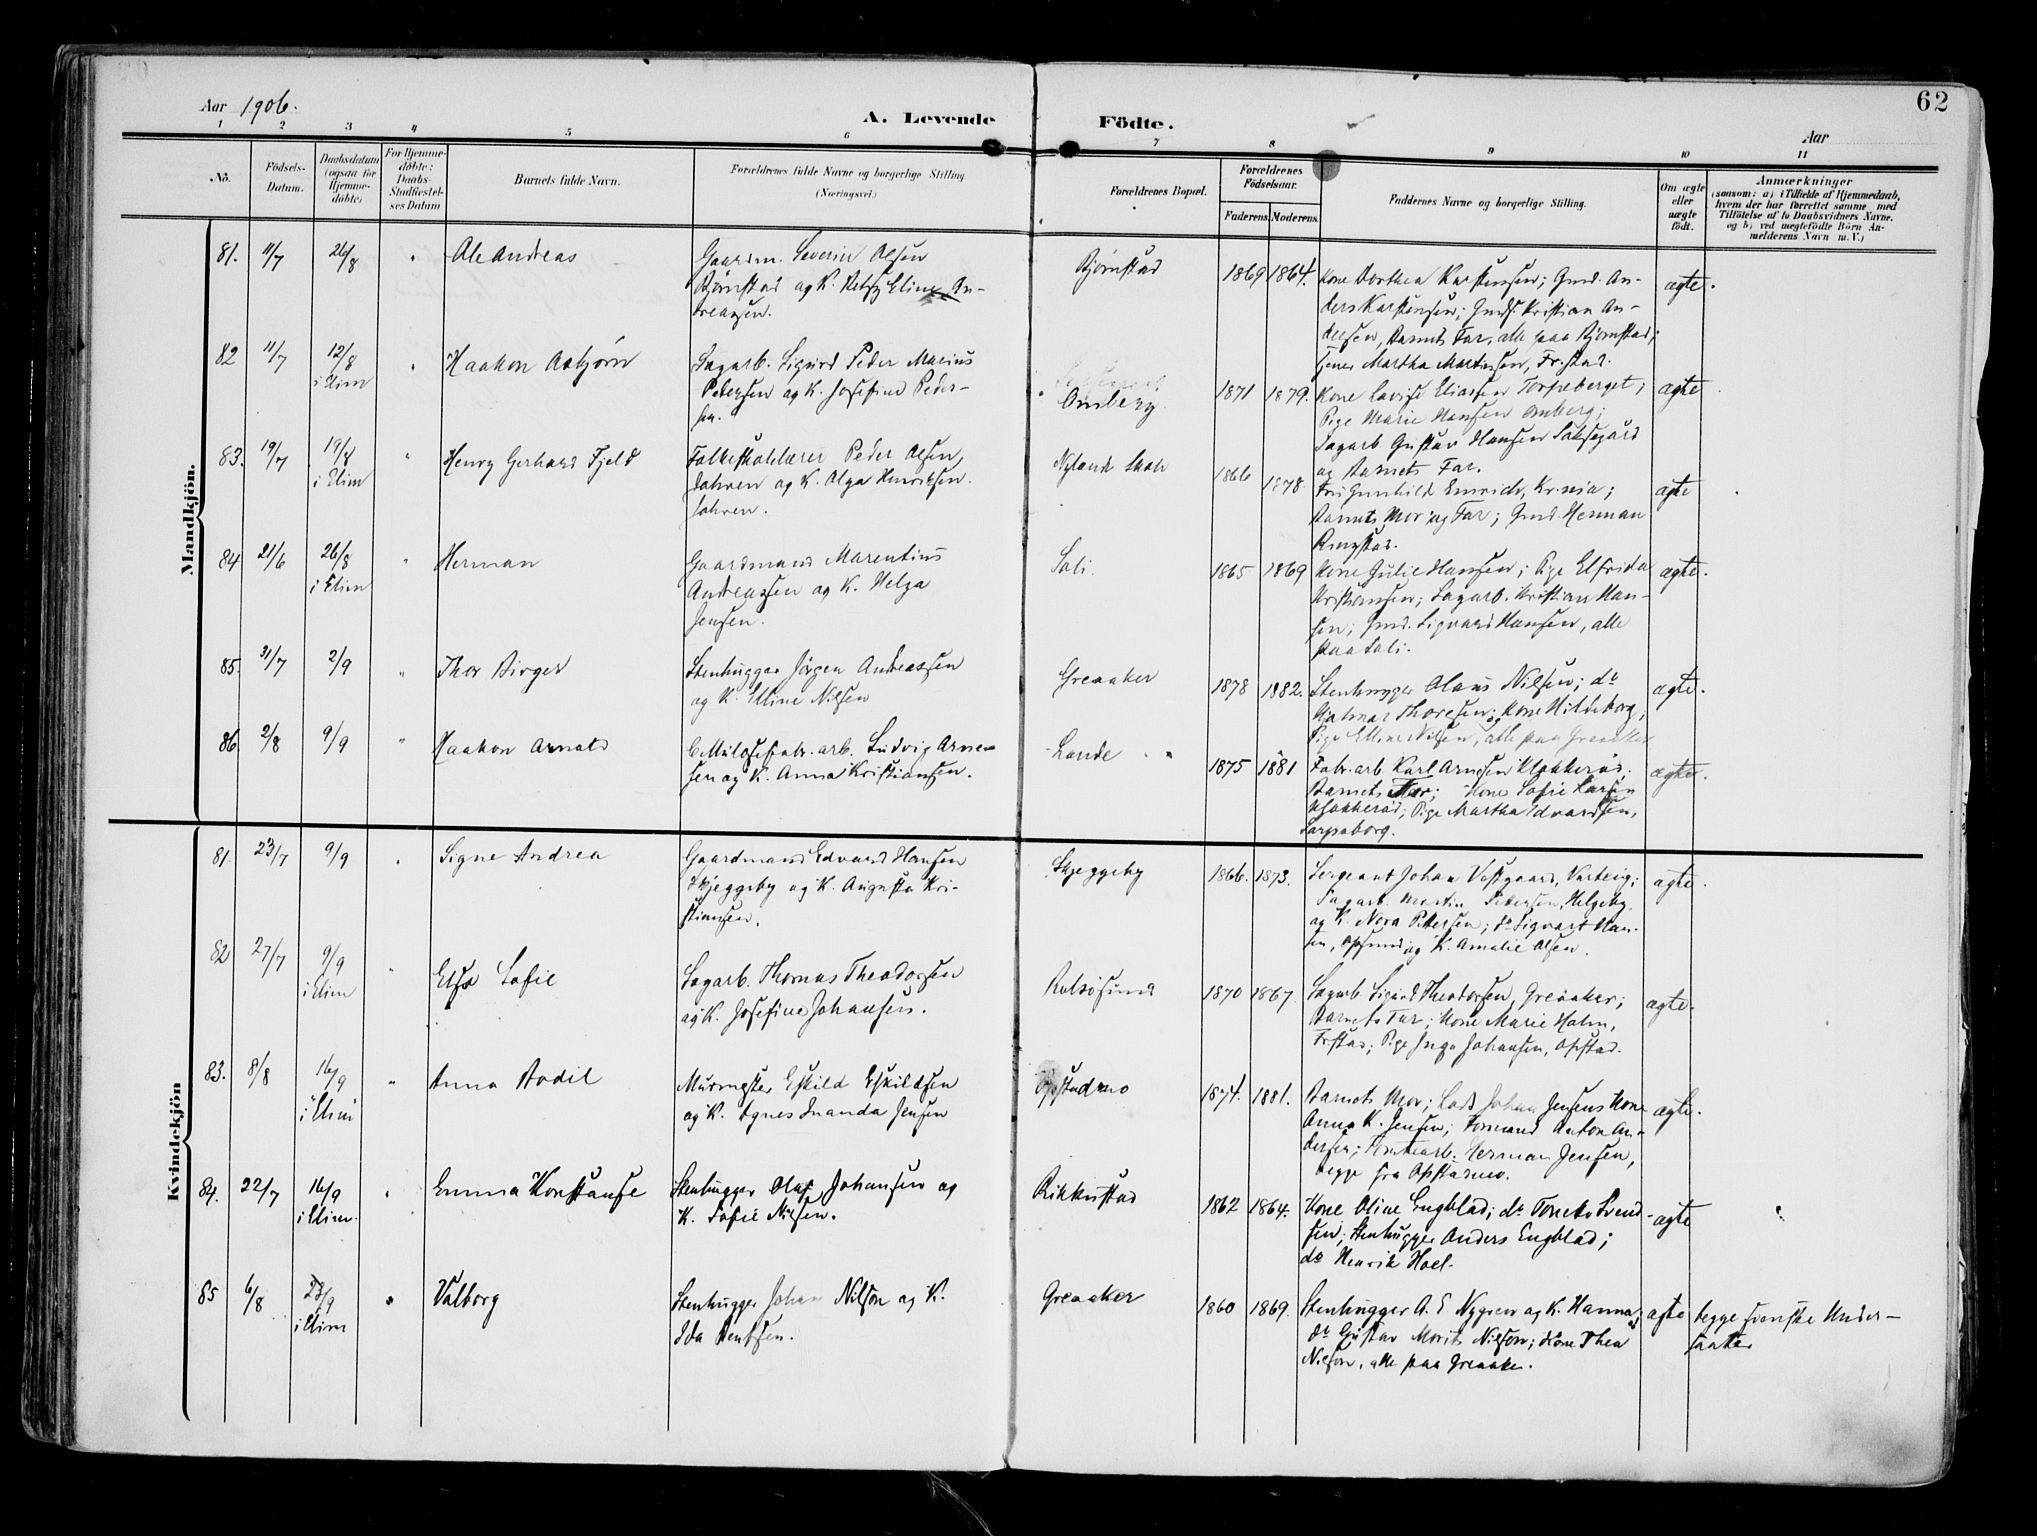 62
Aar 1906.
A. Levende Födte.
Aar
1 2 3 4 5 6 7 8 9 10 11
No.
Födsels-Datum.
Daabsdatum (ogsaa for Hjemme-döbte)
For Hjemme-döbte: Daabs-Stadfæstel-ses Datum
Barnets fulde Navn.
Forældrenes fulde Navne og borgerlige Stilling (Næringsvei.)
Forældrenes Bopæl.
Forældrenes Födselsaar.
Faderens. Moderens.
Faddernes Navne og borgerlige Stilling.
Om ægte eller uægte födt.
Anmærkninger
(saasom: a) i Tilfælde af Hjemmedaab,
hvem der har forrettet samme med
Tilföielse af to Daabsvidners Navne.
og b) ved uægtefödte Börn An-
melderens Navn m. V.)
Mandkjön.
81. 11/7 26/8 " Ole Andreas
Gaardm. Severin Olsen
Bjørnstad og K. Betsy Eline An-
dreasen.
Bjørnstad 1869 1864.
Kone Dorthea Karstensen; Gmd. An-
ders Karstensen; Gmds. Kristian An-
dersen, Barnets Far, alle paa Bjørnstad;
Tjener Martha Martinsen, Fr.stad.
ægte.
82 11/7 12/8 i Elim " Haakon Asbjørn
Sagarb. Sigurd Peder Marius
Petersen og K. Josefine Peder-
sen.
Omberg 1871 1879.
Kone Lovise Eliassen Torpeberget;
Pige Marie Hansen Omberg;
Sagarb. Gustav Hansen
og Barnets Far.
ægte
83. 19/7 19/8 i Elim " Henry Gerhard Fjeld
Folkeskolelærer Peder Olsen
Jahren og K. Olga Henriksen
Jahren.
Nyland Skole 1866 1878.
Fru Gunhild Emrich, Kr.nia;
Barnets Mor og Far; Gmd. Herman
Ringstad.
ægte
84 21/6 26/8 i Elim " Herman
Gaardmand Marentius
Andreassen og K. Helga
Jensen.
Soli. 1865 1869
Kone Julie Hansen; Pige Elfrida
Kristiansen; Sagarb. Kristian Han-
sen; Gmd. Sigvard Hansen, alle
paa Soli.
ægte.
85. 31/7 2/9 " Thor Birger
Stenhugger Jörgen Andreassen
og K. Elline Nilsen
Greaaker 1878 1882.
Stenhugger Olaus Nilsen; do
Hjalmar Thoresen; og Kone Hildeborg,
Pige Elline Nilsen, alle paa Greaaker
ægte.
86. 2/8 9/9 " Haakon Arnold
Cellulosefabr.arb. Ludvig Arne-
sen og K. Anna Kristiansen.
Lande 1875 1881
Fabr.arb. Karl Arnesen Klokkerød,
Barnets Mor; Kone Sofie Larsen
Klokkerød; Pige Martha Edvardsen,
Sarpsborg.
ægte.
Kvindekjön
81. 23/7 9/9 " Signe Andrea
Gaardmand Edvard Hansen
Skjeggeby og K. Augusta Kri-
stiansen.
Skjeggeby 1866. 1873.
Sergeant Johan Vestgaard, Varteig;
Sagarb. Martin Pedersen, Helgeby,
og K. Nora Petersen; do Sigvart Han-
sen, Opsund og K. Amalie Olsen.
ægte.
82 27/7 9/9 i Elim " Elsa Sofie
Sagarb. Thomas Theodorsen
og K. Josefine Johansen.
Rolsösund 1870 1867.
Sagarb. Sigurd Theodorsen, Greaaker;
Barnets Far; Kone Marie Holm,
Fr.stad; Pige Inga Johansen, Opstad.
ægte.
83. 8/8 16/9 i Elim " Anna Bodil
Murmester Eskild Eskildsen
og K. Agnes Wanda Jensen
Opstadmo 1874. 1881.
Barnets Mor; Lods Johan Jensens Kone
Anna K. Jensen; Formand Anton An-
dersen; Herman Jensen,
begge fra Opstadmo.
ægte.
84. 22/7 16/9 i Elim. " Emma Konstanse
Stenhugger Olaf Johansen og
K. Sofie Nilsen.
Rikkustad 1862 1864.
Kone Oline Engblad; do Tomeka Svend-
sen; Stenhugger Anders Engblad;
do Henrik Hoel.
ægte
85 6/8 23/9 i Elim " Valborg
Stenhugger Johan Nilson og K.
Ida Bentsen.
Greaaker 1860 1869.
Stenhugger A. E Nygren og K. Hanna,
do Gustav Morits Nilson; Kone Thea
Nilson, alle paa Greaaker.
ægte
begge svenske Under-
saatter